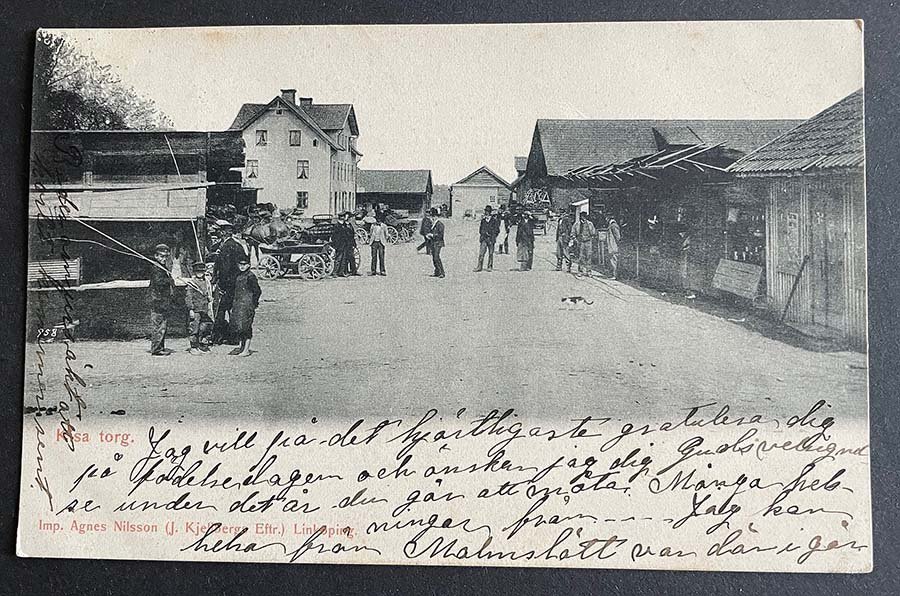 958
Kisa torg.
Jag vill på det hjärtligaste gratulera dig
på födelsedagen och önskar jag dig Guds välsignel-
se under det år du går att möta. Många hels-
Imp. Agnes Nilsson (J. Kjellbergs Eftr.) Linköping.
ningar från - - - - Jag kan
helsa från Malmslätt var där i går